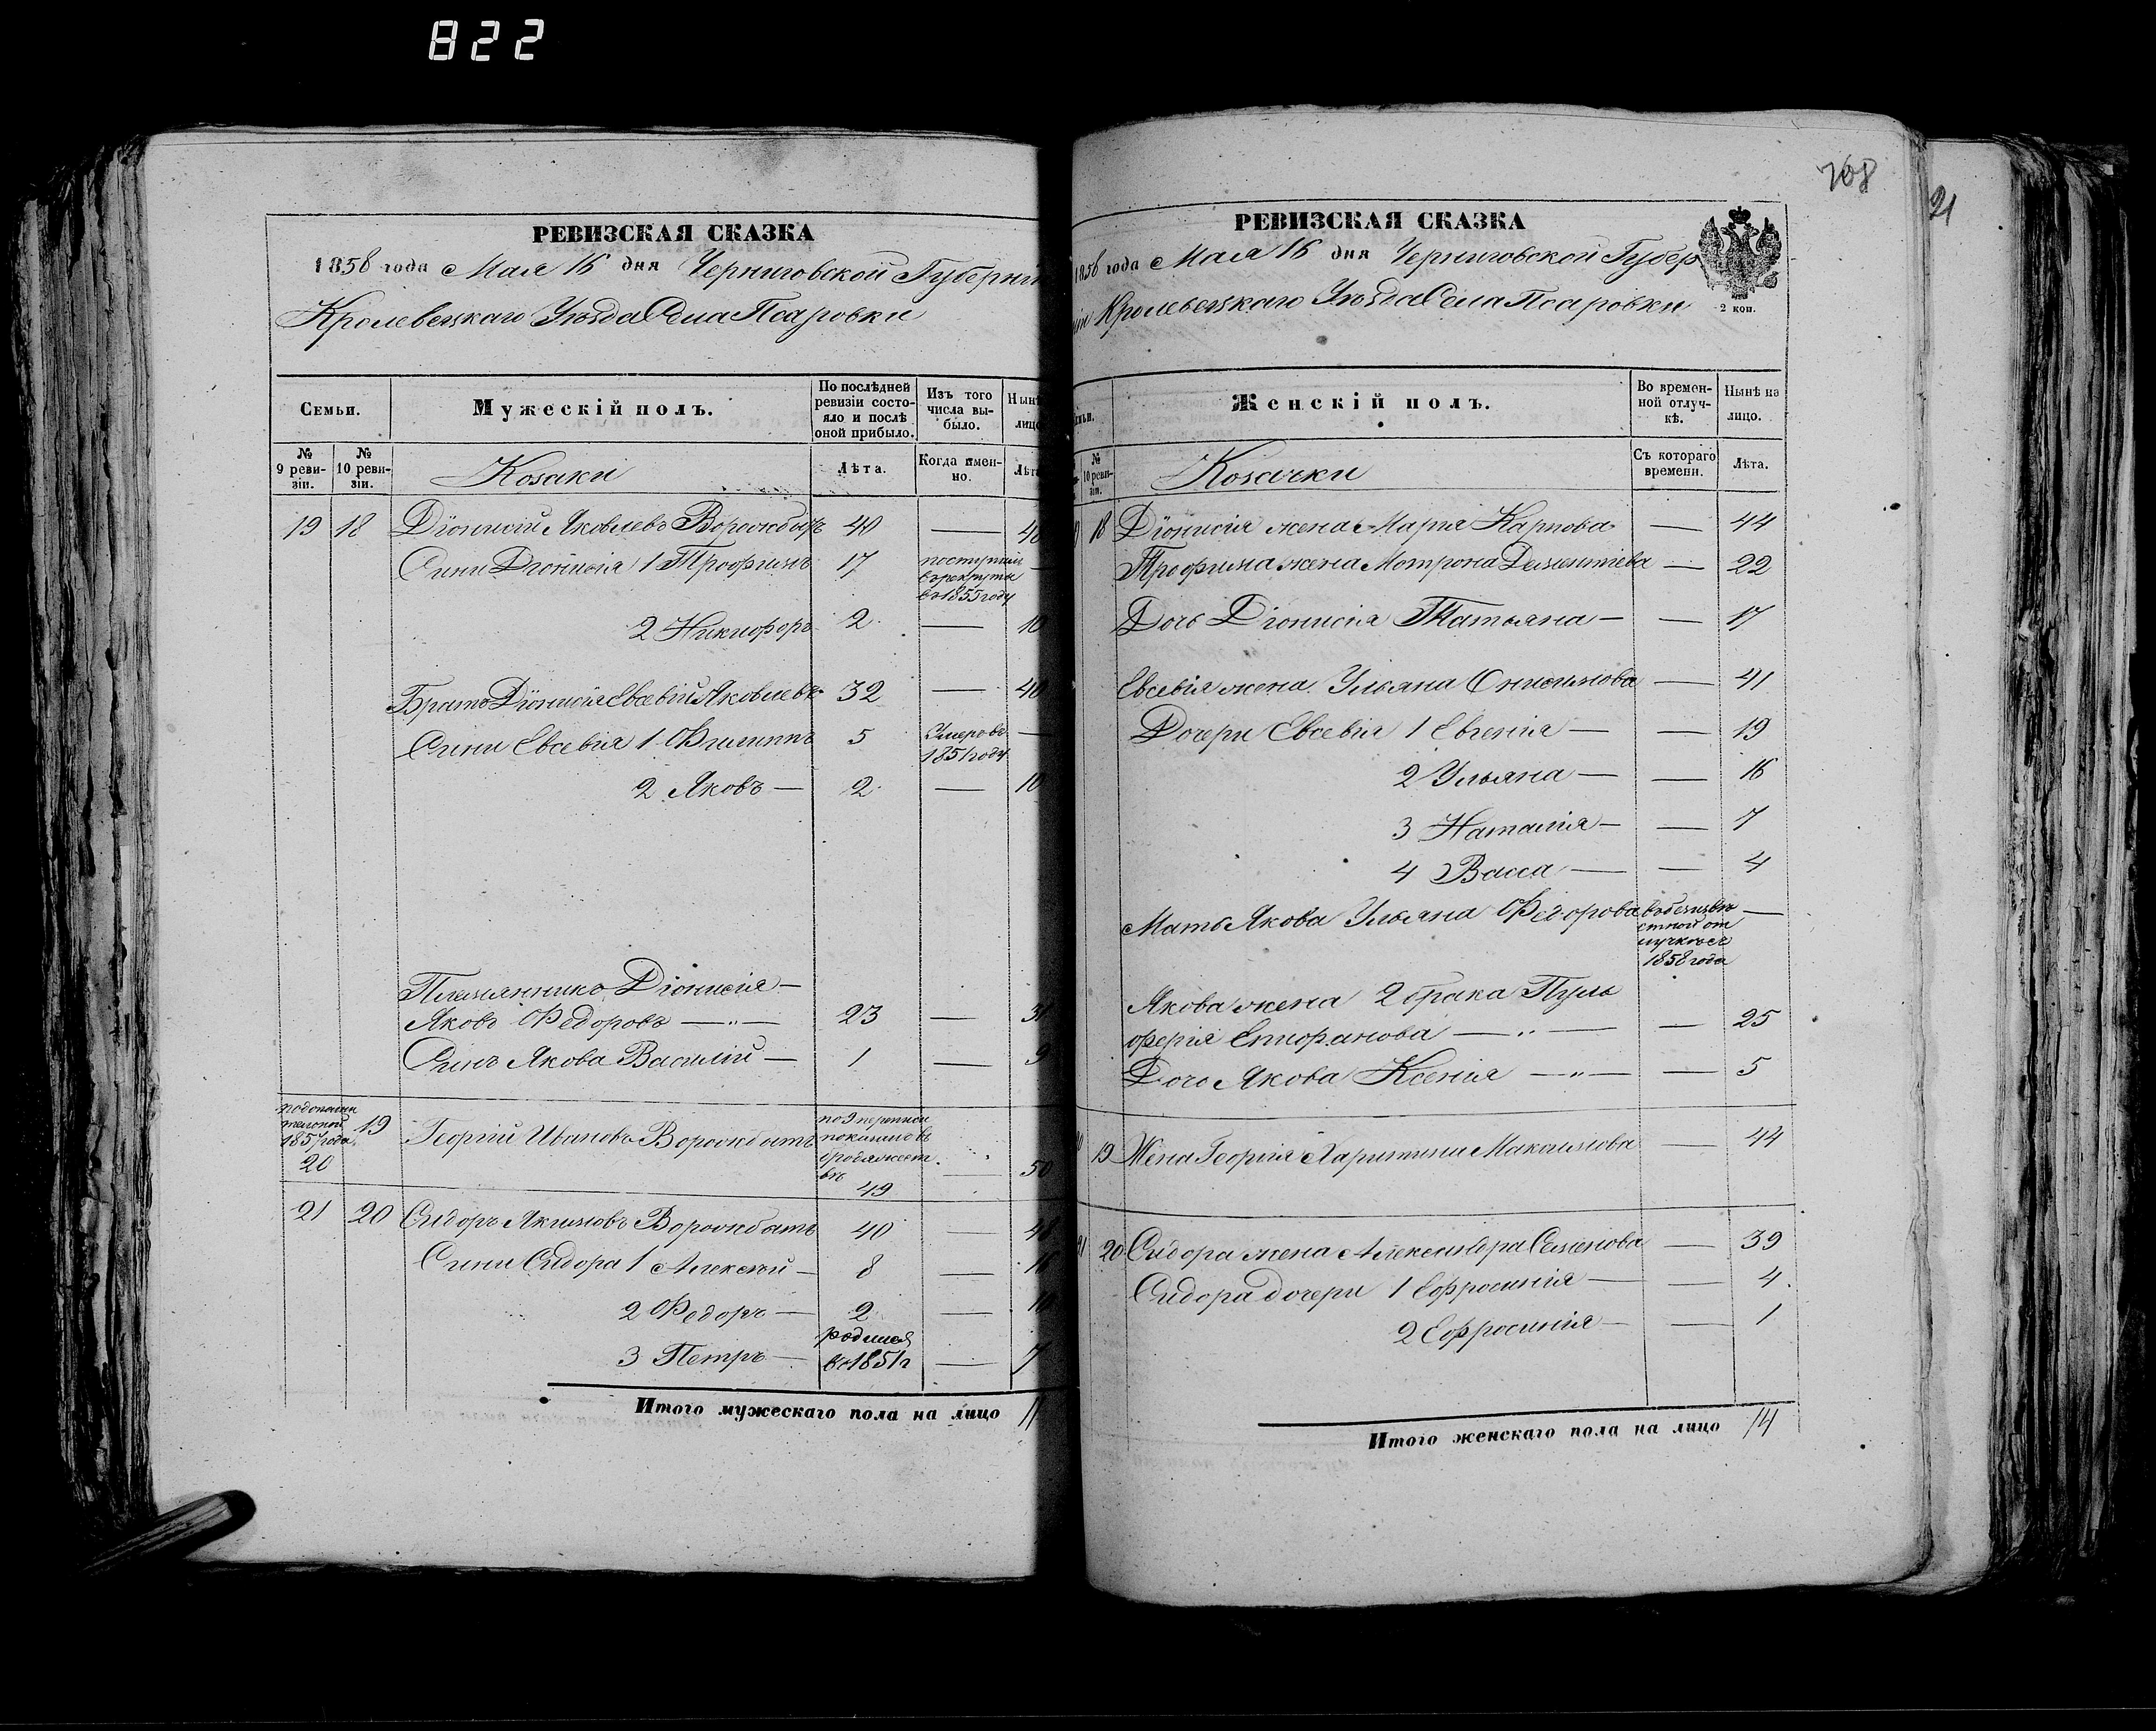 822
РЕВИЗСКАЯ СКАЗКА
1858 года Мая 16 дня Черниговской Губерни
Кролевецкаго Уѣзда Села Псаровки
Семьи.
Мужескій полъ.
По послѣдней ревизіи состояло и послѣ оной прибыло.
Изъ того числа выбыло.
Нынѣ лицо
№ 9 ревизіи.
№ 10 ревизіи.
Козаки
Лѣта.
Когда именно.
Лѣта
19 18 Діонисій Яковлевъ Ворожбытъ 40 — 48
Сини Діонисія 1 Трофимъ 17 поступилъ в рекруты въ 1855 году —
2 Никифоръ 2 — 10
Братъ Діонисія Евсевій Яковлевъ 32 — 40
Сини Евсевія 1 Филиппъ 5 Умеръ въ 1851 году —
2 Яковъ — 2 — 10
Племянникъ Діонисія —
Яковъ Федоровъ — „ — 23 — 31
Синъ Якова Василій — 1 — 9
1857 года 20
19 Георгій Ивановъ Ворожбытъ по 9 переписи показанъ в бродяжествѣ 49 — 50
21 20 Сидоръ Якимовъ Ворожбытъ 40 — 48
Сини Сидора 1 Алексѣй — 8 — 16
2 Федоръ — 2 — 10
3 Петръ — родился въ 1851 г — 7
Итого мужескаго пола на лицо 11
708
21
РЕВИЗСКАЯ СКАЗКА
1858 года Мая 16 дня Черниговской Губер
ніи Кролевецкаго Уѣзда Села Псаровки
2 коп.
Женскій полъ.
Во временной отлучкѣ.
Нынѣ на лицо.
№ 10 ревизіи.
Козачки
Съ котораго времени.
Лѣта.
18 Діонисія жена Марія Карпова — 44
Трофима жена Мотрона Дементіева — 22
Дочь Діонисія Татьяна — — 17
Евсевія жена Ульяна Онисимова — 41
Дочери Евсевія 1 Евгенія — — 19
2 Ульяна — — 16
3 Наталія — — 7
4 Васса — — 4
Мать Якова Ульяна Федорова въ безизвѣстной отлучкѣ съ 1858 года —
Якова жена 2 брака Пуль
ферія Епифанова — „ — — 25
Дочь Якова Ксенія — „ — — 5
19 Жена Георгія Харитина Максимова — 44
21 20 Сидора жена Александра Семенова — 39
Сидора дочери 1 Ефросинія — — 4
2 Ефросинія — — 1
Итого женскаго пола на лицо 14